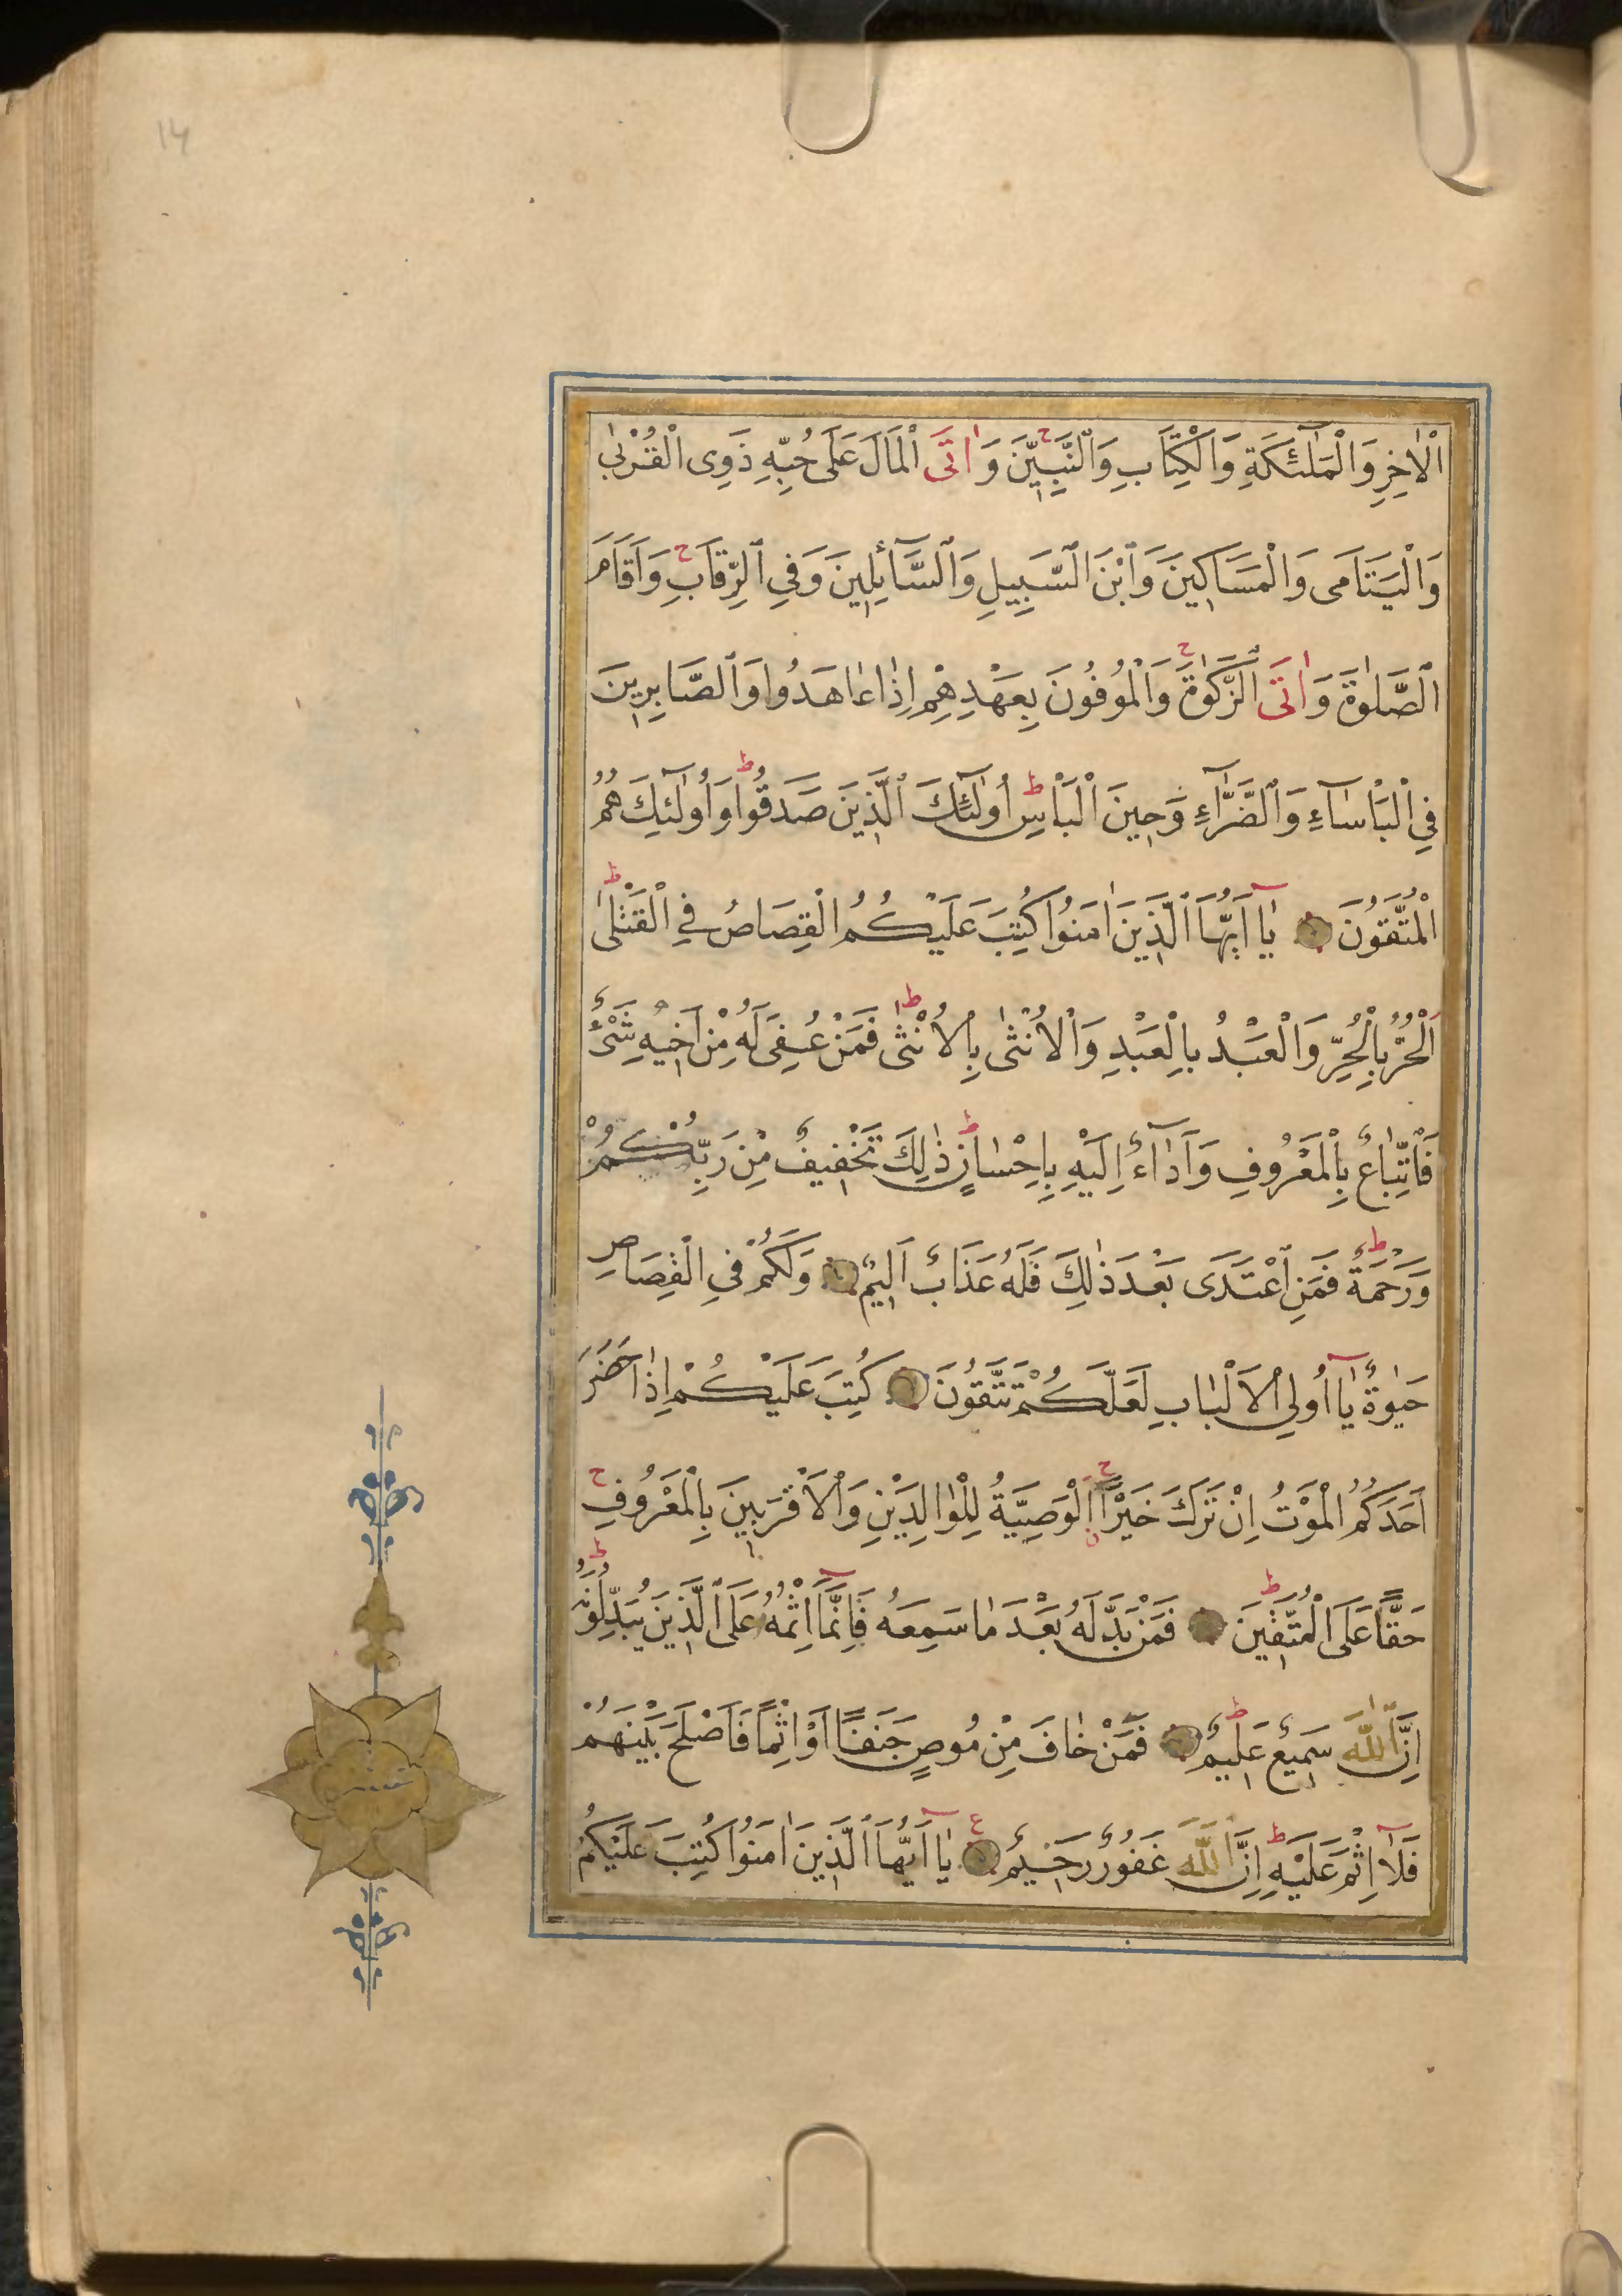 14
اْلاٰخِرِ وَالْمَلٰٓئِكَةِ وَالْكِتَابِ وَالنَّبِيّٖنَ ح وَاٰتَى الْمَالَ عَلٰى حُبِّهٖ ذَوِى الْقُرْبٰى
وَالْيَتَامٰى وَالْمَسَاكٖينَ وَابْنَ السَّبِيلِ وَالسَّٓائِلٖينَ وَفِي الرِّقَابِ ح وَاَقَامَ
الصَّلٰوةَ وَاٰتَى الزَّكٰوةَ ح وَالْمُوفُونَ بِعَهْدِهِمْ اِذَا عَاهَدُوا وَالصَّابِرٖينَ
فِي الْبَأْسَٓاءِ وَالضَّرَّٓاءِ وَحٖينَ الْبَأْسِ ط اُولٰٓئِكَ الَّذٖينَ صَدَقُوا ط وَاُولٰٓئِكَ هُمُ
الْمُتَّقُونَ يَٓا اَيُّهَا الَّذٖينَ اٰمَنُوا كُتِبَ عَلَيْكُمُ الْقِصَاصُ فِي الْقَتْلٰى ط
اَلْحُرُّ بِالْحُرِّ وَالْعَبْدُ بِالْعَبْدِ وَالْاُنْثٰى بِالْاُنْثٰى ط فَمَنْ عُفِىَ لَهُ مِنْ اَخٖيهِ شَىْءٌ
فَاتِّبَاعٌ بِالْمَعْرُوفِ وَاَدَٓاءٌ اِلَيْهِ بِاِحْسَانٍ ط ذٰلِكَ تَخْفٖيفٌ مِنْ رَبِّكُمْ
وَرَحْمَةٌ ط فَمَنِ اعْتَدٰى بَعْدَ ذٰلِكَ فَلَهُ عَذَابٌ اَلٖيمٌ وَلَكُمْ فِي الْقِصَاصِ
حَيٰوةٌ يَٓا اُولِي الْاَلْبَابِ لَعَلَّكُمْ تَتَّقُونَ كُتِبَ عَلَيْكُمْ اِذَا حَضَرَ
اَحَدَكُمُ الْمَوْتُ اِنْ تَرَكَ خَيْرًا ح الْوَصِيَّةُ لِلْوَالِدَيْنِ وَالْاَقْرَبٖينَ بِالْمَعْرُوفِ ح
حَقًّا عَلَى الْمُتَّقٖينَ ط فَمَنْ بَدَّلَهُ بَعْدَ مَا سَمِعَهُ فَاِنَّمَٓا اِثْمُهُ عَلَى الَّذٖينَ يُبَدِّلُونَهُ ط
اِنَّ اللّٰهَ سَمٖيعٌ عَلٖيمٌ ط فَمَنْ خَافَ مِنْ مُوصٍ جَنَفًا اَوْ اِثْمًا فَاَصْلَحَ بَيْنَهُمْ
فَلَٓا اِثْمَ عَلَيْهِ ط اِنَّ اللّٰهَ غَفُورٌ رَحٖيمٌ ع يَٓا اَيُّهَا الَّذٖينَ اٰمَنُوا كُتِبَ عَلَيْكُمُ